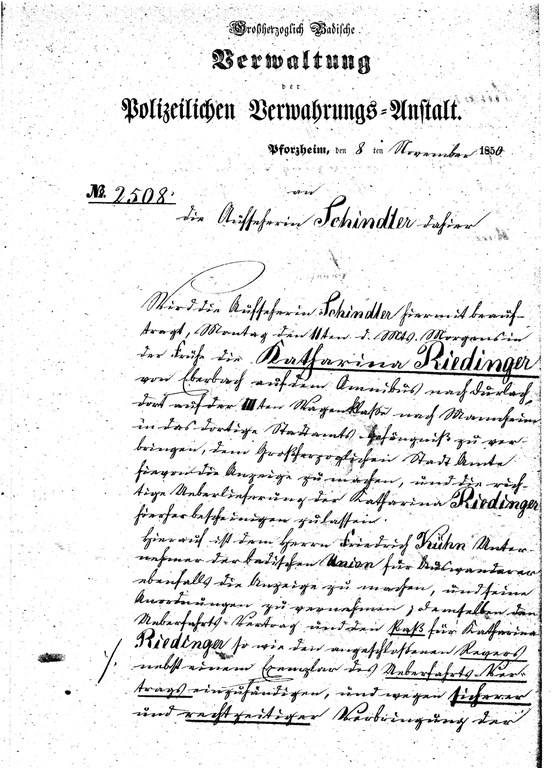 Großherzoglich Badische
Verwaltung
der
Polizeilichen Verwahrungs-Anstalt.
Pforzheim, den 8 ten November 1850
№. 2508.
an
die Aufseherin Schindler dahier
Wird die Aufseherin Schindler hiermit beauf-
tragt, Montag den 11ten d. Mts. Morgens in
der Frühe die Katharina Riedinger
von Eberbach auf dem Omnibus nach Durlach,
dort auf der IIIten Wagenklaße nach Mannheim
in das dortige Stadtamts-Gefängniß zu ver-
bringen, dem Großherzoglichen Stadt Amte
hievon die Anzeige zu machen, und die rich-
tige Ueberlieferung der Katharina Riedinger
hierher bescheinigen zu lassen.
Hierauf ist dem Herrn Friedrich Kühn Unter-
nehmer der badischen Union für Auswanderer
ebenfalls die Anzeige zu machen, und seine
Anordnungen zu vernehmen, demselben den
Ueberfahrts-Vertrag und den Paß für Katharina
Riedinger so wie den angeschlossenen Revers
nebst einem Exemplar des Ueberfahrts-Ver-
trags einzuhändigen, und wegen sicherer
und rechtzeitiger Verbringung der